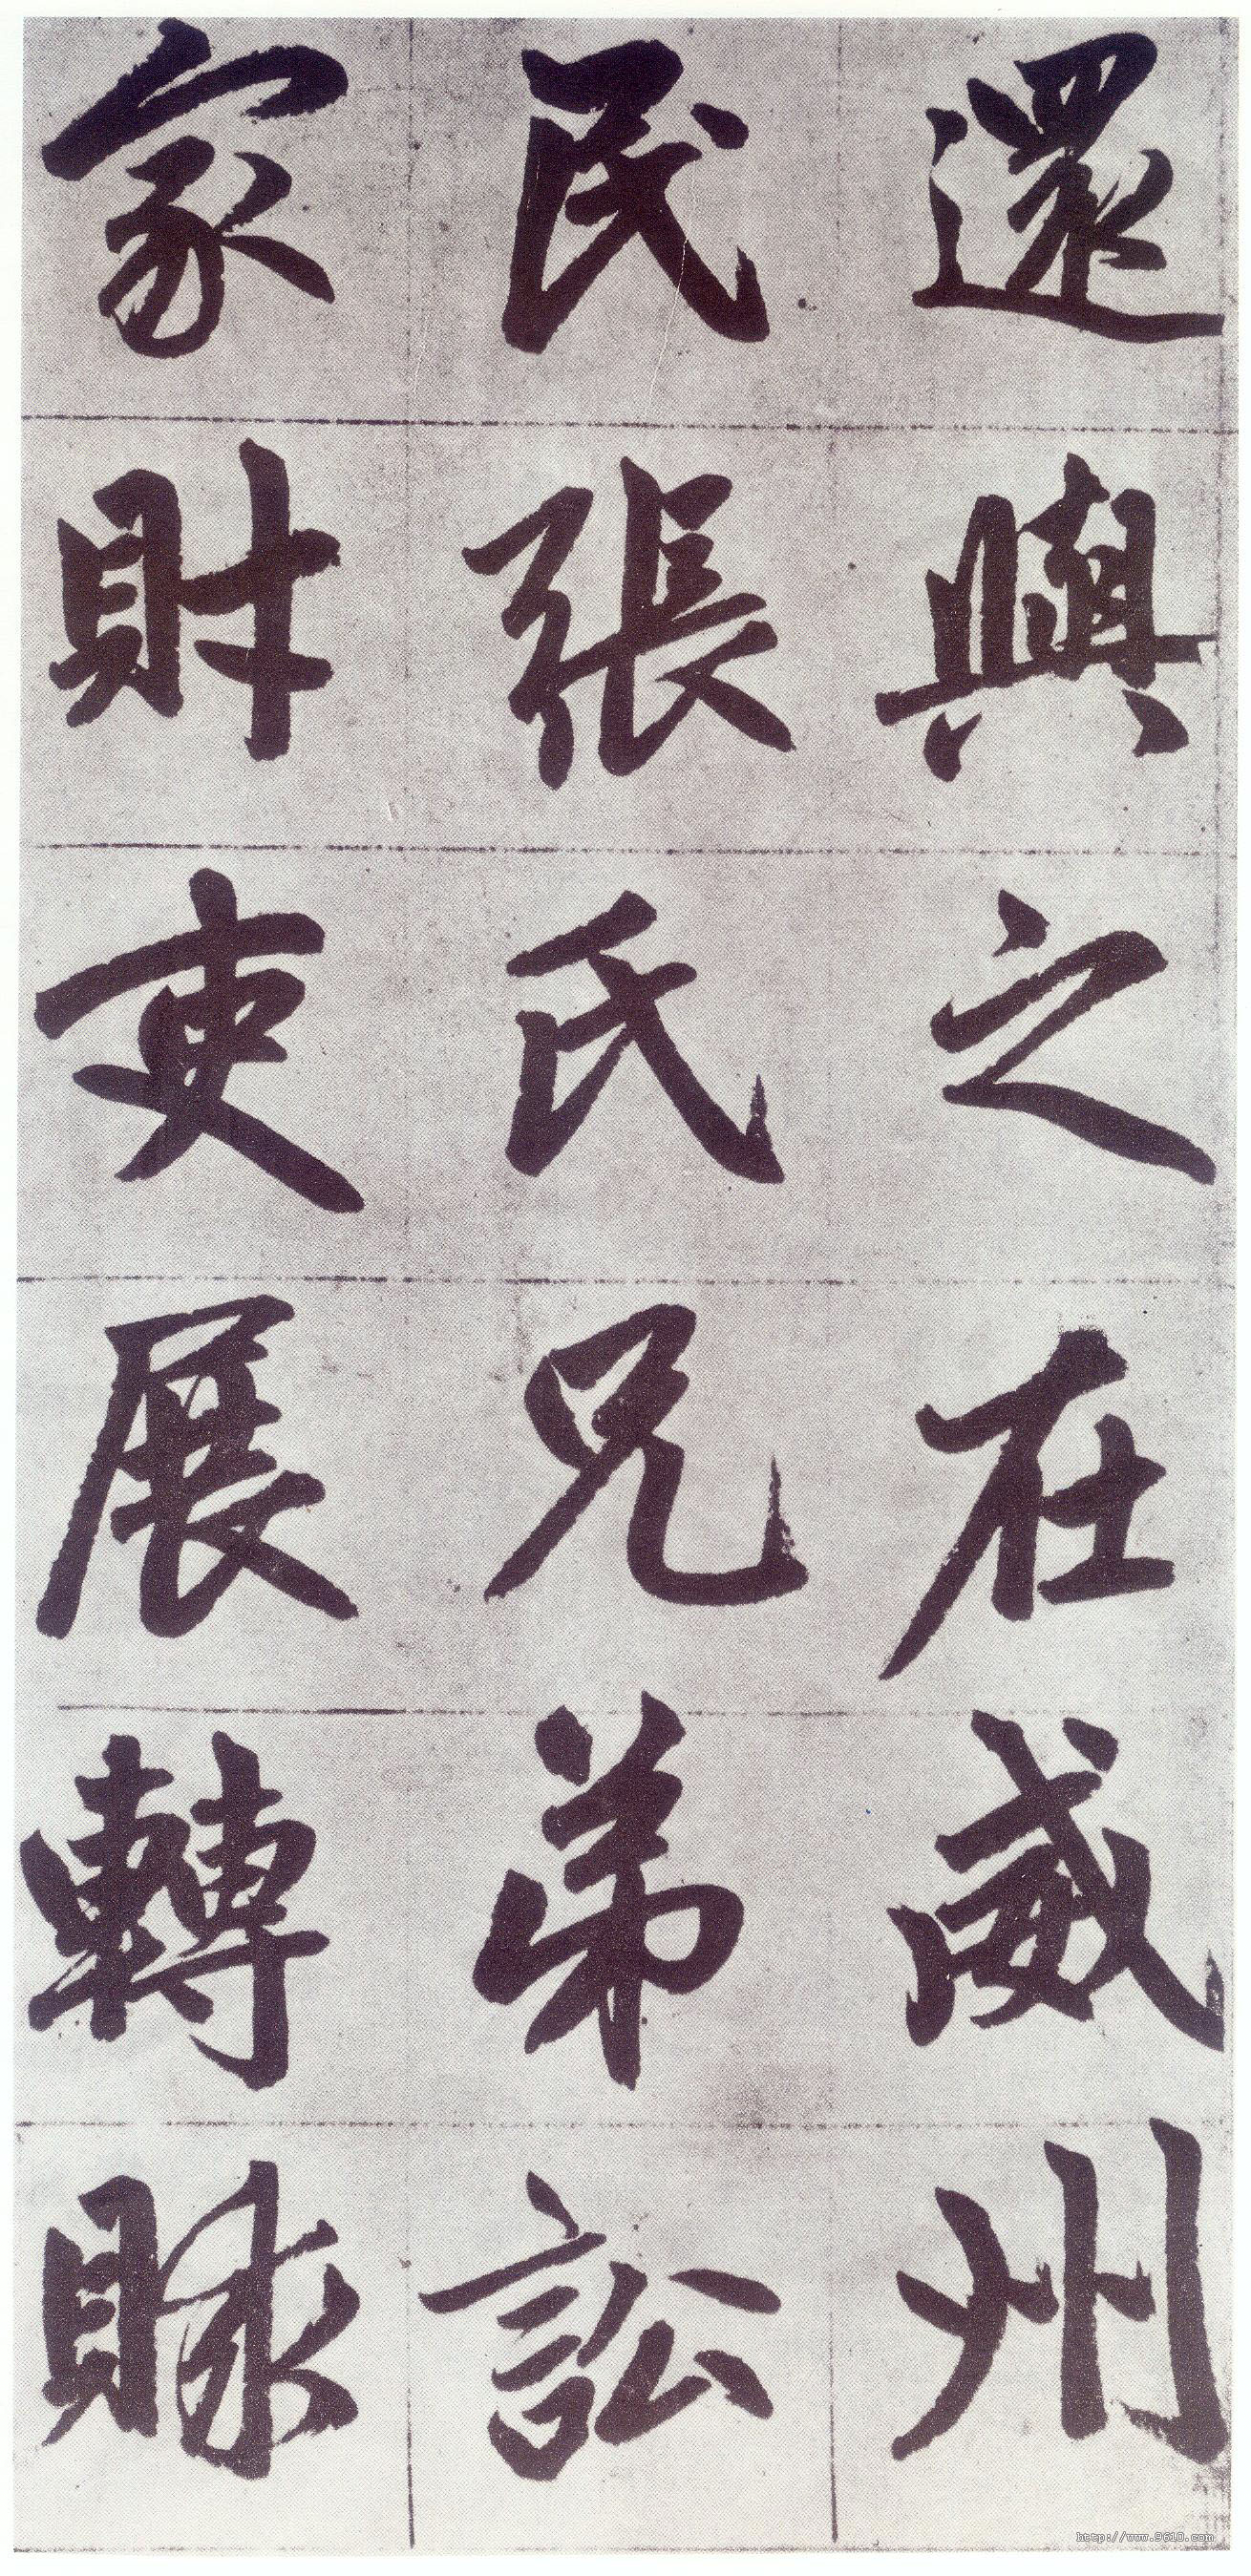 還與之在威州
民張氏兄弟訟
家財吏展轉賕
http://www.9610.com